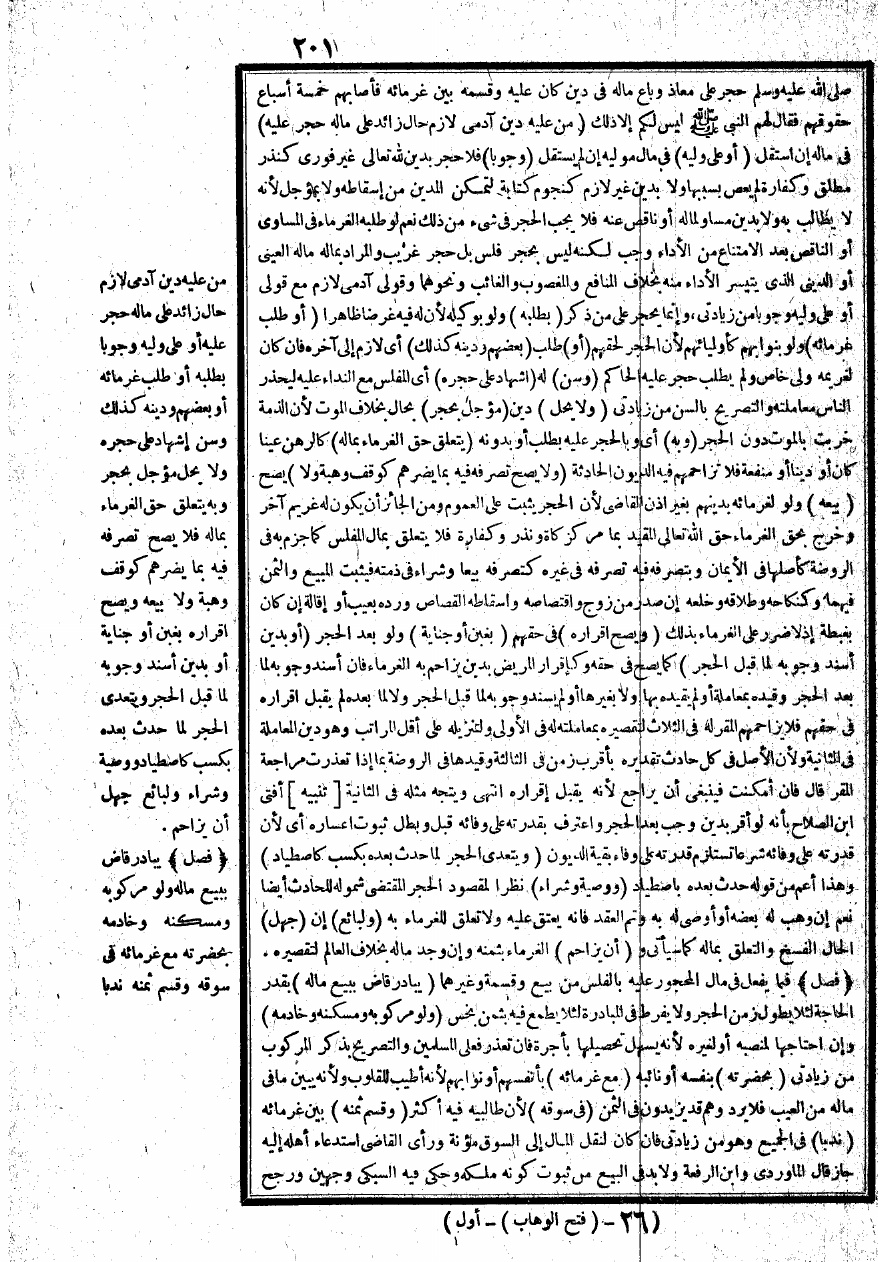 ٢٠١
صلى الله عليه وسلم حجر على معاذ وباع ماله فى دين كان عليه وقسمه بين غرمائه فأصابهم خمسة أسباع
حقوقهم فقال لهم النبى ﷺ ليس لكم إلا ذلك ( من عليه دين آدمى لازم حال زائد على ماله حجر عليه)
فى ماله إن استقل ( أو على وليه) فى مال موليه إن لم يستقل (وجوبا) فلا حجر بدين لله تعالى غير فورى كنذر
مطلق وكفارة لم يعص بسببها ولا بدين غير لازم كنجوم كتابة لتمكن المدين من إسقاطه ولا بمؤجل لأنه
لا يطالب به ولا بدين مساو لماله أو ناقص عنه فلا يجب الحجر فى شىء من ذلك نعم لو طلبه الغرماء فى المساوى
أو الناقص بعد الامتناع من الأداء وجب لكنه ليس بحجر فلس بل حجر غريب والمراد بماله ماله العينى
أو الدينى الذى يتيسر الأداء منه بخلاف المنافع والمغصوب والغائب ونحوهما وقولى آدمى لازم مع قولى
أو على وليه وجوبا من زيادتى، وإنما يحجر على من ذكر ( بطلبه ) ولو بوكيله لأن له فيه غرضا ظاهرا ( أو طلب
غرمائه) ولو بنوابهم كأوليائهم لأن الحجر لحقهم (أو) طلب (بعضهم ودينه كذلك ) أى لازم إلى آخره فان كان
لغريمه ولى خاص ولم يطلب حجر عليه الحاكم (وسن) له (إشهاد على حجره) أى المفلس مع النداء عليه ليحذر
الناس معاملته والتصريح بالسن من زيادتى ( ولا يحل ) دين (مؤجل بحجر) بحال بخلاف الموت لأن الذمة
خربت بالموت دون الحجر (وبه) أى وبالحجر عليه بطلب أو بدونه (يتعلق حق الغرماء بماله) كالرهن عينا
كان أو دينا أو منفعة فلا تزاحمهم فيه الديون الحادثة (ولا يصح تصرفه فيه بما يضرهم كوقف وهبة ولا ) يصح
( بيعه ) ولو لغرمائه بدينهم بغير اذن القاضى لأن الحجر يثبت على العموم ومن الجائز أن يكون له غريم آخر
وخرج بحق الغرماء حق الله تعالى المقيد بما مر كزكاة ونذر وكفارة فلا يتعلق بمال المفلس كما جزم به فى
الروضة كأصلها فى الأيمان وبتصرفه فيه تصرفه فى غيره كتصرفه بيعا وشراء فى ذمته فيثبت المبيع والثمن
فيهما وكنكاحه وطلاقه وخلعه إن صدر من زوج واقتصاصه واسقاطه القصاص ورده بعيب أو إقالة إن كان
بغبطة إذ لا ضرر على الغرماء بذلك ( ويصح اقراره ) فى حقهم ( بغبن أو جناية ) ولو بعد الحجر (أو بدين
أسند وجوبه لما قبل الحجر ) كما يصح فى حقه وكإقرار المريض بدين يزاحم به الغرماء فان أسند وجوبه لما
بعد الحجر وقيده بمعاملة أو لم يقيده بها ولا بغيرها أو لم يسند وجوبه لما قبل الحجر ولا لما بعده لم يقبل اقراره
فى حقهم فلا يزاحمهم المقر له فى الثلاث لتقصيره بمعاملته له فى الأولى ولتنزيله على أقل المراتب وهو دين المعاملة
فى الثانية ولأن الأصل فى كل حادث تقديره بأقرب زمن فى الثالثة وقيدها فى الروضة بما إذا تعذرت مراجعة
المقر قال فان أمكنت فينبغى أن يراجع لأنه يقبل إقراره انتهى ويتجه مثله فى الثانية [ تنبيه ] أفتى
ابن الصلاح بأنه لو أقر بدين وجب بعد الحجر واعترف بقدرته على وفائه قبل وبطل ثبوت اعساره أى لأن
قدرته على وفائه شرعا تستلزم قدرته على وفاء بقية الديون ( ويتعدى الحجر لما حدث بعده بكسب كاصطياد )
وهذا أعم من قوله حدث بعده باصطياد (ووصية وشراء) نظرا لمقصود الحجر المقتضى شموله للحادث أيضا
نعم إن وهب له بعضه أو أوصى له به وتم العقد فانه يعتق عليه ولا تعلق للغرماء به (ولبائع) إن (جهل)
الحال الفسخ والتعلق بماله كما سيأتى و ( أن يزاحم ) الغرماء بثمنه وإن وجد ماله بخلاف العالم لتقصيره .
﴿ فصل ﴾ فيما يفعل فى مال المحجور عليه بالفلس من بيع وقسمة وغيرهما ( يبادر قاض ببيع ماله ) بقدر
الحاجة لئلا يطول زمن الحجر ولا يفرط فى المبادرة لئلا يطمع فيه بثمن بخس (ولو مركوبه ومسكنه وخادمه )
وإن احتاجها لمنصبه أو لغيره لأنه يسهل تحصيلها بأجرة فان تعذر فعلى المسلمين والتصريح بذكر المركوب
من زيادتى ( بحضرته ) بنفسه أو نائبه ( مع غرمائه ) بأنفسهم أو نوابهم لأنه أطيب للقلوب ولأنه يبين ما فى
ماله من العيب فلا يرد وهم قد يزيدون فى الثمن (فى سوقه ) لأن طالبيه فيه أكثر ( وقسم ثمنه ) بين غرمائه
( ندبا) فى الجميع وهو من زيادتى فان كان لنقل المال إلى السوق مؤنة ورأى القاضى استدعاء أهله إليه
جاز قال الماوردى وابن الرفعة ولا بد فى البيع من ثبوت كونه ملكه وحكى فيه السبكى وجهين ورجح
من عليه دين آدمى لازم
حال زائد على ماله حجر
عليه أو على وليه وجوبا
بطلبه أو طلب غرمائه
أو بعضهم ودينه كذلك
وسن إشهاد على حجره
ولا يحل مؤجل بحجر
وبه يتعلق حق الغرماء
بماله فلا يصح تصرفه
فيه بما يضرهم كوقف
وهبة ولا بيعه ويصح
اقراره بغبن أو جناية
أو بدين أسند وجوبه
لما قبل الحجر ويتعدى
الحجر لما حدث بعده
بكسب كاصطياد ووصية
وشراء ولبائع جهل
أن يزاحم .
﴿ فصل ﴾ يبادر قاض
ببيع ماله ولو مركوبه
ومسكنه وخادمه
بحضرته مع غرمائه فى
سوقه وقسم ثمنه ندبا
(٢٦ – ( فتح الوهاب ) – أول )